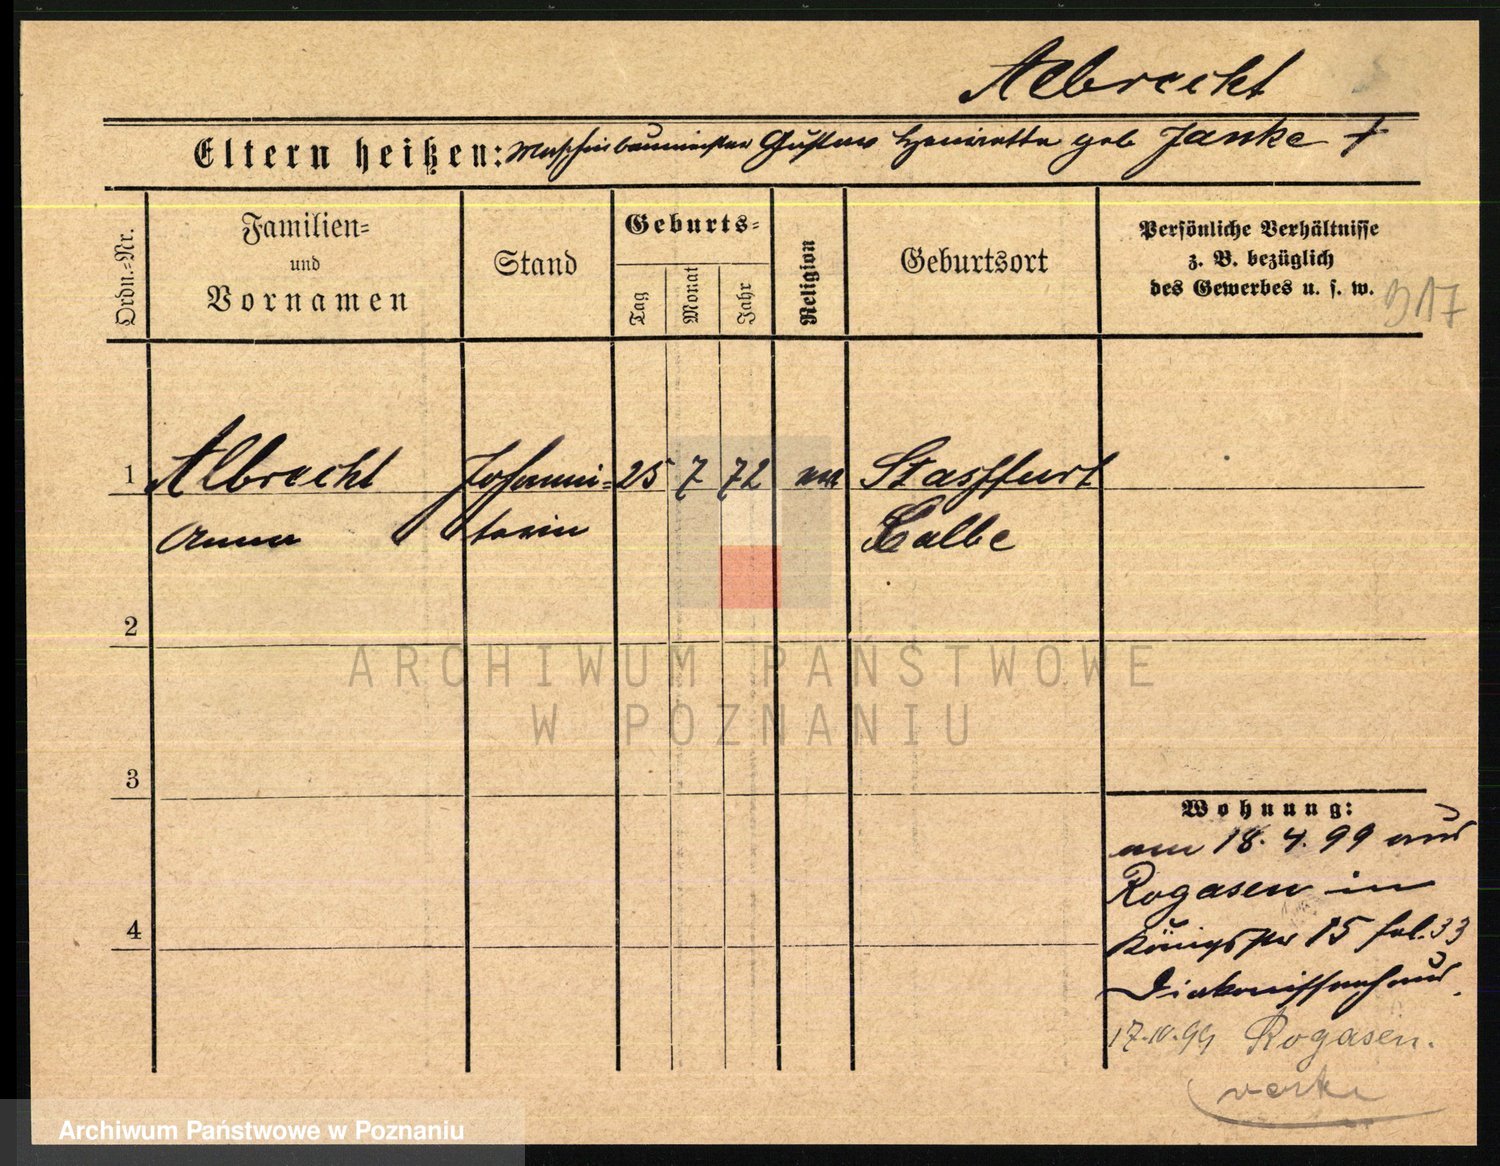 Albrecht
Eltern heißen: Maschinbaumeister Gustav Henriette geb Janke †
Ordn.-Nr.
Familien-
und
Vornamen
Stand
Geburts-
Tag
Monat
Jahr
Religion
Geburtsort
Persönliche Verhältnisse
z. B. bezüglich
des Gewerbes u. s. w.
917
1 Albrecht Johanni- 25 7 72 Stassfurt
Anna terin Calbe
2
ARCHIWUM PAŃSTWOWE
W POZNANIU
3
Wohnung:
am 18. 4. 99 aus
Rogasen in
4
Königstr 15 fol. 33
Diakonissenhaus.
17.10.99 Rogasen.
Archiwum Państwowe w Poznaniu